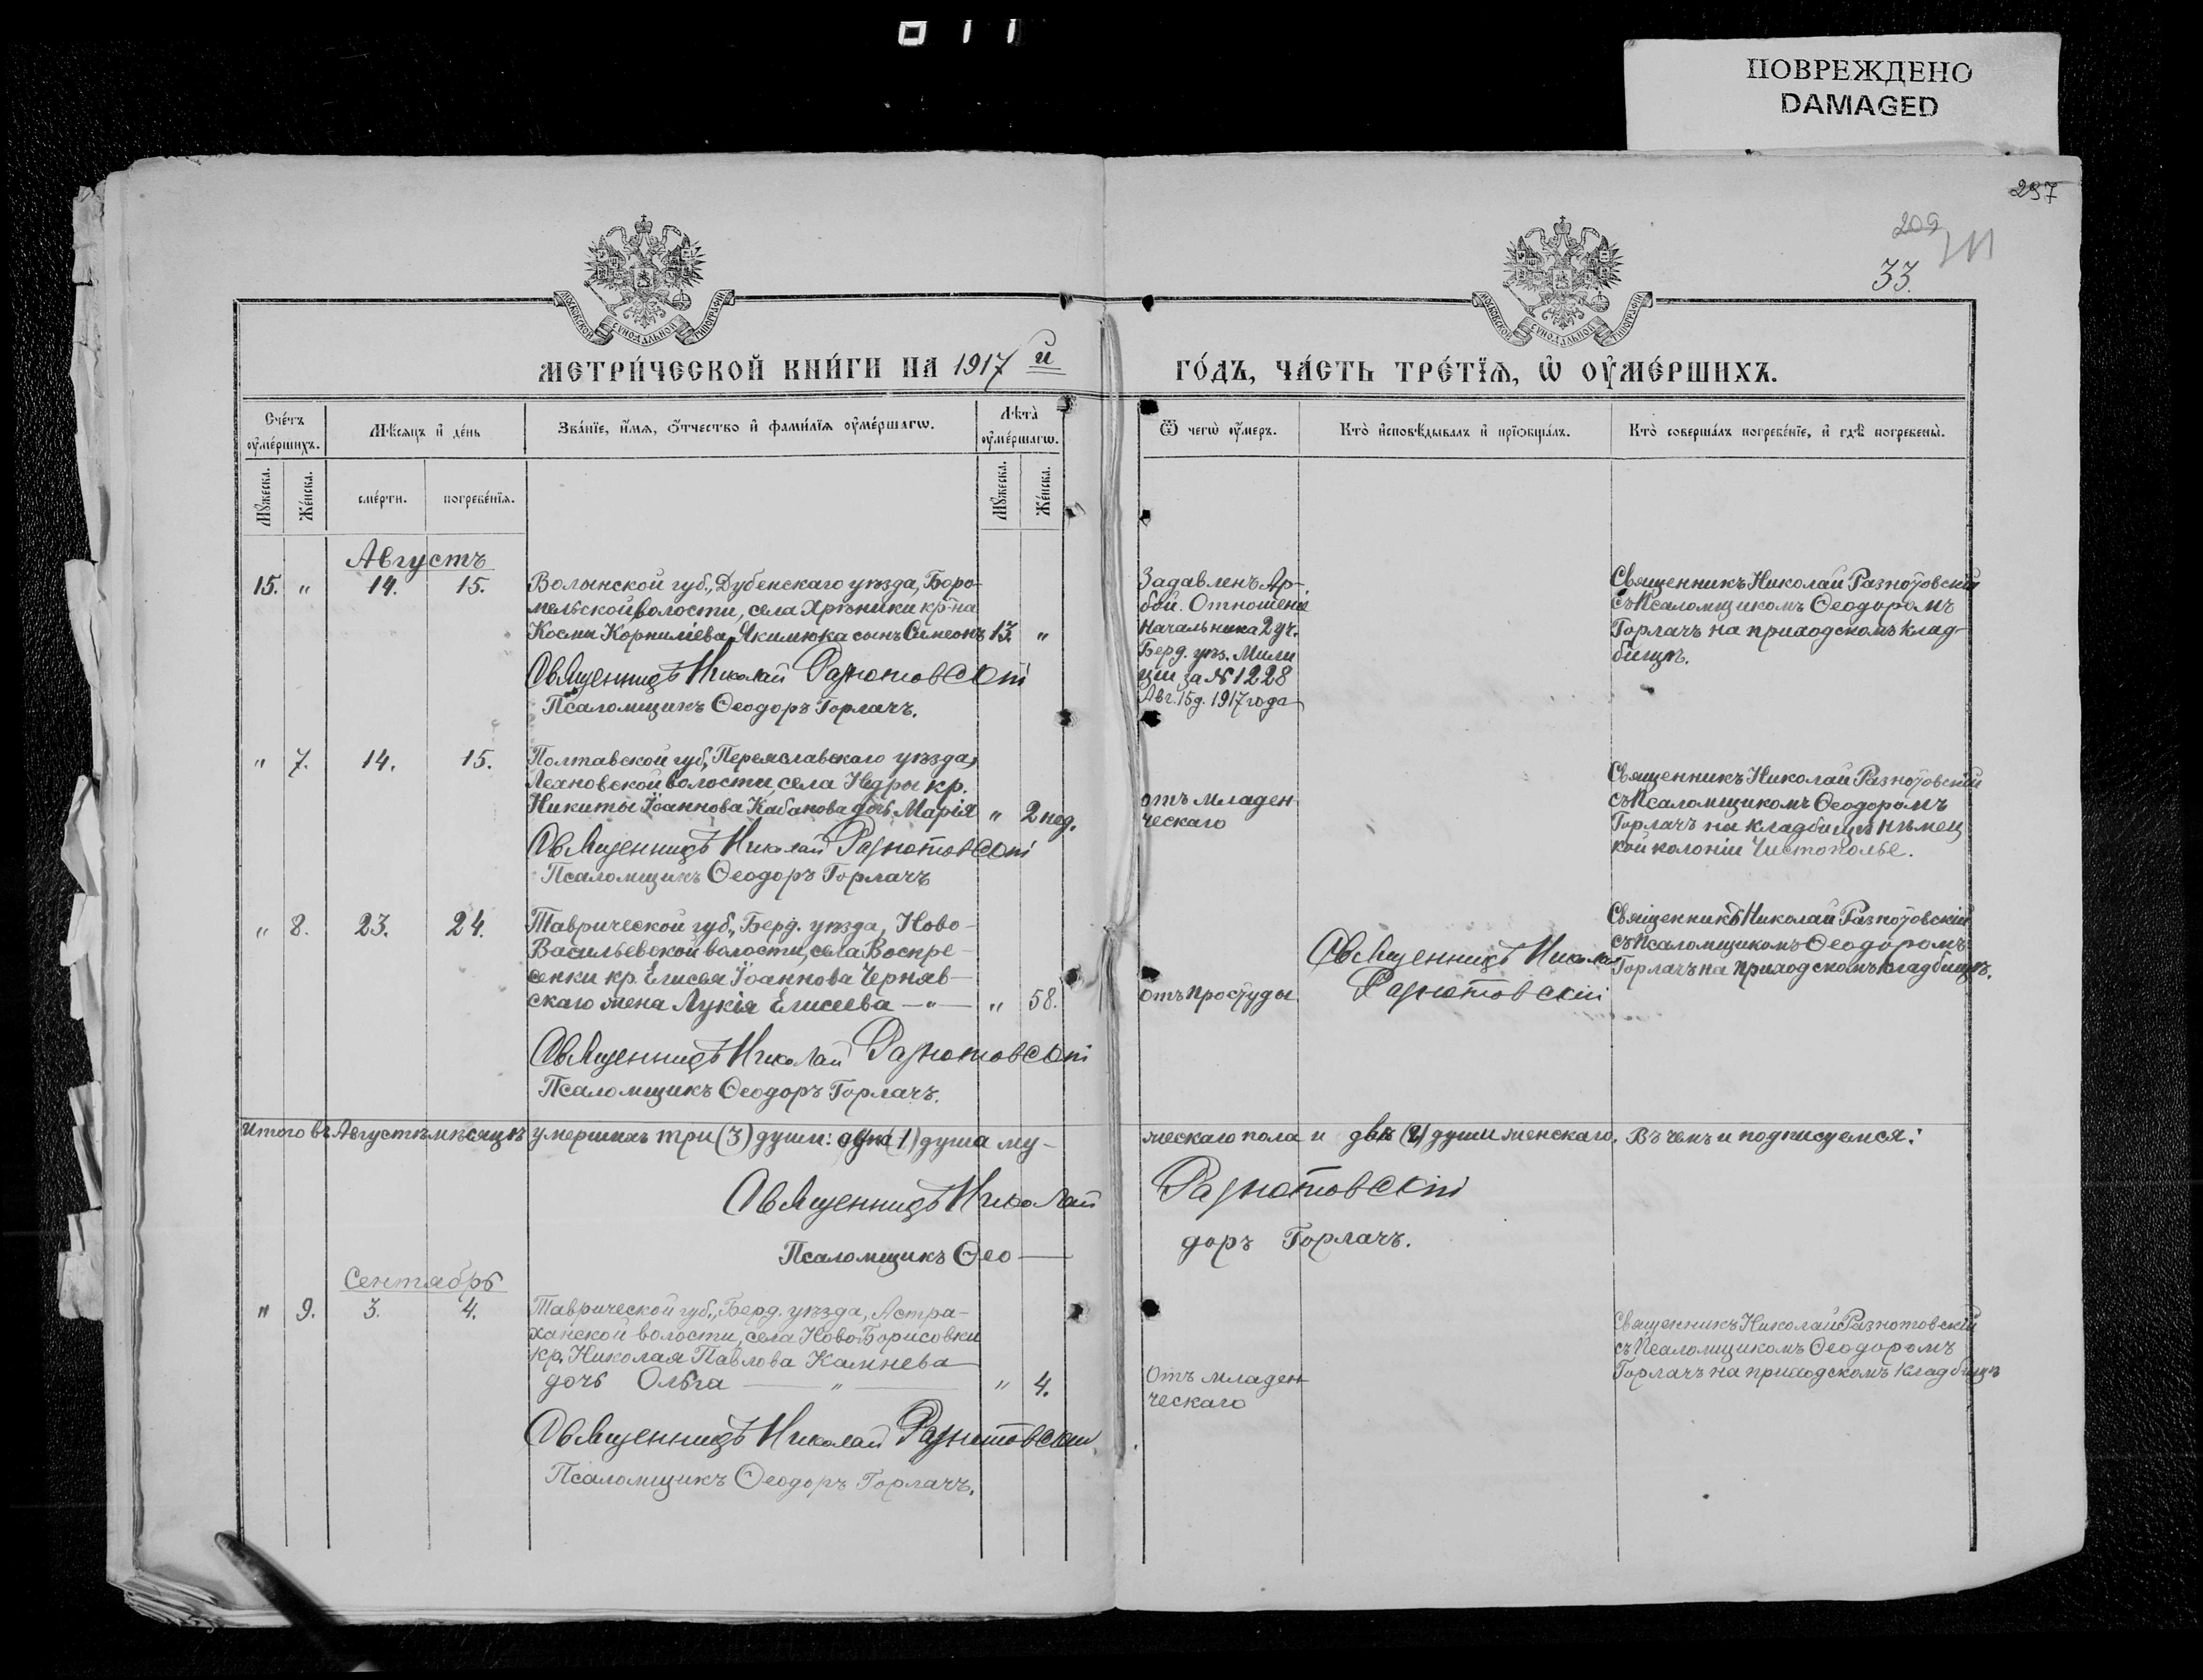 011
ПОВРЕЖДЕНО
DAMAGED
297
209
33.
МОСКОВСКОЙ СУНОДАЛЬНОЙ ТИПОГРАФІИ
МОСКОВСКОЙ СУНОДАЛЬНОЙ ТИПОГРАФІИ
МЕТРИ́ЧЕСКОЙ КНИ́ГИ НА 1917 й
ГО́ДЪ, ЧА́СТЬ ТРЕ́ТЇѦ, Ѡ҆ ОУ҆МЕ́РШИХЪ.
Сче́тъ оу҆ме́ршихъ.
Мѣ́сяцъ и҆ де́нь
Зва́нїе, и҆́мѧ, ѻ҆́тчество и҆ фами́лїѧ оу҆ме́ршагѡ.
Лѣта̀ оу҆ме́ршагѡ.
Ѿ чегѡ̀ оу҆́меръ.
Кто̀ и҆сповѣ́дывалъ и҆ прїѡбща́лъ.
Кто̀ соверша́лъ погребе́нїе, и҆ гдѣ̀ погребены̀.
Мꙋ́жеска.
Же́нска.
сме́рти.
погребе́нїѧ.
Мꙋ́жеска.
Же́нска.
Августъ
15. " 14. 15.
Волынской губ., Дубенскаго уѣзда, Боро-
мельской волости, села Хрѣники кр-на
Космы Корниліева Якимюка сынъ Симеонъ 13. "
Священникъ Николай Разнотовскій
Псаломщикъ Ѳеодоръ Горлачъ.
Задавленъ Ар-
бой. Отношеніе
Начальника 2 уч.
Берд. уѣз. Мили
ціи за № 1228
Авг. 15 д. 1917 года
Священникъ Николай Разнотовскій
съ Псаломщикомъ Ѳеодоромъ
Горлачъ на приходскомъ клад-
бищѣ.
" 7. 14. 15.
Полтавской губ., Переяславскаго уѣзда,
Лехновской волости, села Недры кр.
Никиты Іоаннова Кабанова дочь Марія " 2 нед.
Священникъ Николай Разнотовскій
Псаломщикъ Ѳеодоръ Горлачъ
отъ младен
ческаго
Священникъ Николай Разнотовскій
съ Псаломщикомъ Ѳеодоромъ
Горлачъ на кладбищѣ нѣмец
кой колоніи Чистополье.
" 8. 23. 24.
Таврической губ., Берд. уѣзда, Ново-
Васильевской волости, села Воскре-
сенки кр. Елисея Іоаннова Черняв-
скаго жена Лукія Елисеева — " — " 58.
Священникъ Николай Разнотовскій
Псаломщикъ Ѳеодоръ Горлачъ.
отъ простуды
Священникъ Николай
Разнотовскій
Священникъ Николай Разнотовскій
съ Псаломщикомъ Ѳеодоромъ
Горлачъ на приходскомъ кладбищѣ.
Итого въ Августѣ мѣсяцѣ умершихъ три (3) души: одна (1) душа му-
жескаго пола и двѣ (2) души женскаго. Въ чемъ и подписуемся:
Священникъ Николай Разнотовскій
Псаломщикъ Ѳео — доръ Горлачъ.
Сентябрь
" 9. 3. 4.
Таврической губ., Берд. уѣзда, Астра-
ханской волости, села НовоБорисовки
кр. Николая Павлова Камнева
дочь Ольга — " — " 4.
Священникъ Николай Разнотовскій
Псаломщикъ Ѳеодоръ Горлачъ.
Отъ младен
ческаго
Священникъ Николай Разнотовскій
съ Псаломщикомъ Ѳеодоромъ
Горлачъ на приходскомъ кладбищѣ